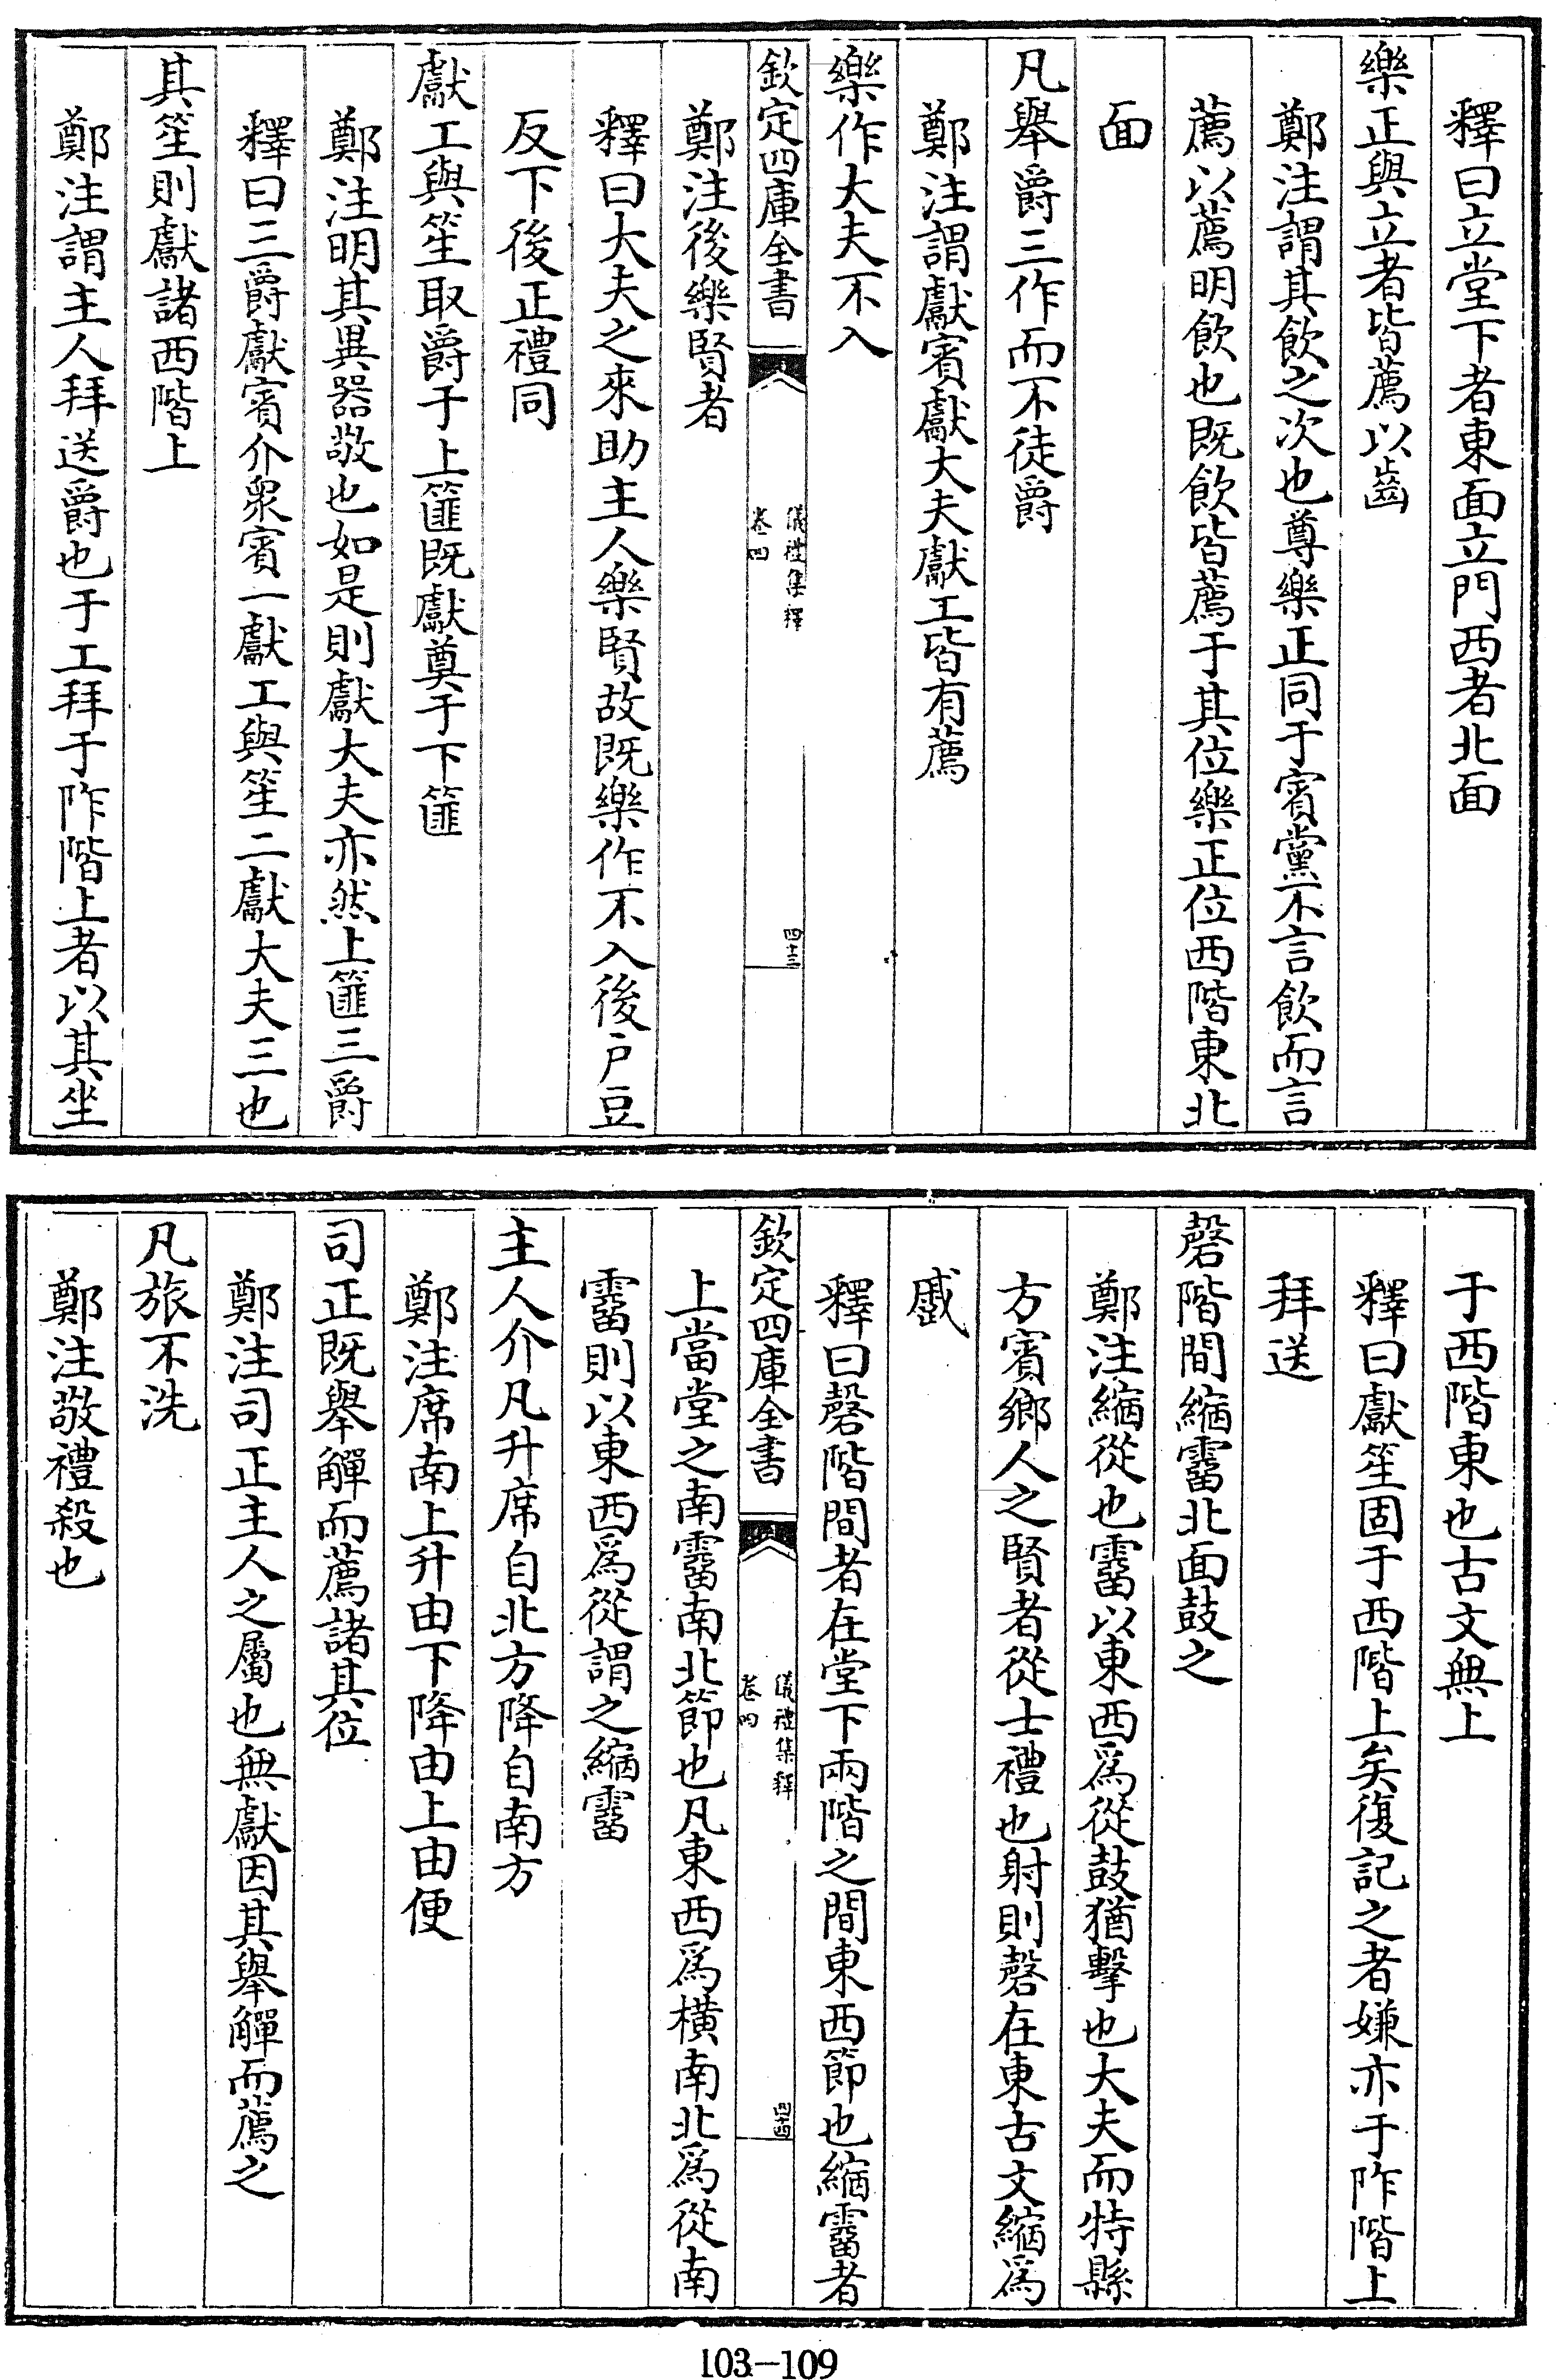 釋曰立堂下者東面立門西者北面
樂正與立者皆薦以齒
鄭注謂其飲之次也尊樂正同于賓黨不言飲而言
薦以薦明飲也既飲皆薦于其位樂正位西階東北
面
凡舉爵三作而不徒爵
鄭注謂獻賓獻大夫獻工皆有薦
樂作大夫不入
欽定四庫全書
儀禮集釋
卷四
四十三
鄭注後樂賢者
釋曰大夫之來助主人樂賢故既樂作不入後戸豆
反下後正禮同
獻工與笙取爵于上篚既獻奠于下篚
鄭注明其異器敬也如是則獻大夫亦然上篚三爵
釋曰三爵獻賓介衆賓一獻工與笙二獻大夫三也
其笙則獻諸西階上
鄭注謂主人拜送爵也于工拜于阼階上者以其坐
于西階東也古文無上
釋曰獻笙固于西階上矣復記之者嫌亦于阼階上
拜送
磬階間縮霤北面鼓之
鄭注縮從也霤以東西爲從鼓猶擊也大夫而特縣
方賓鄉人之賢者從士禮也射則磬在東古文縮爲
蹙
釋曰磬階間者在堂下兩階之間東西節也縮霤者
欽定四庫全書
儀禮集釋
卷四
四十四
上當堂之南霤南北節也凡東西爲橫南北爲從南
霤則以東西爲從謂之縮霤
主人介凡升席自北方降自南方
鄭注席南上升由下降由上由便
司正既舉觶而薦諸其位
鄭注司正主人之屬也無獻因其舉觶而薦之
凡旅不洗
鄭注敬禮殺也
103-109